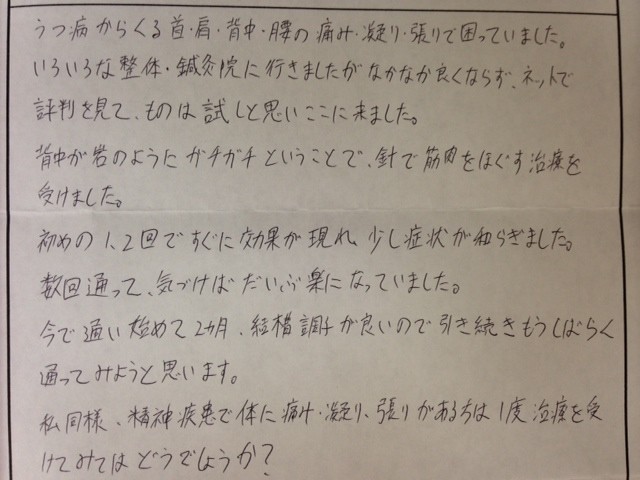 うつ病からくる首・肩・背中・腰の痛み・凝り・張りで困っていました。
いろいろな整体・鍼灸院に行きましたがなかなか良くならず、ネットで
評判を見て、ものは試しと思いここに来ました。
背中が岩のようにガチガチということで、針で筋肉をほぐす治療を
受けました。
初めの1、2回ですぐに効果が現れ、少し症状が和らぎました。
数回通って、気づけばだいぶ楽になっていました。
今で通い始めて2カ月、結構調子が良いので引き続きもうしばらく
通ってみようと思います。
私同様、精神疾患で体に痛み・凝り、張りがある方は1度治療を受
けてみてはどうでしょうか?